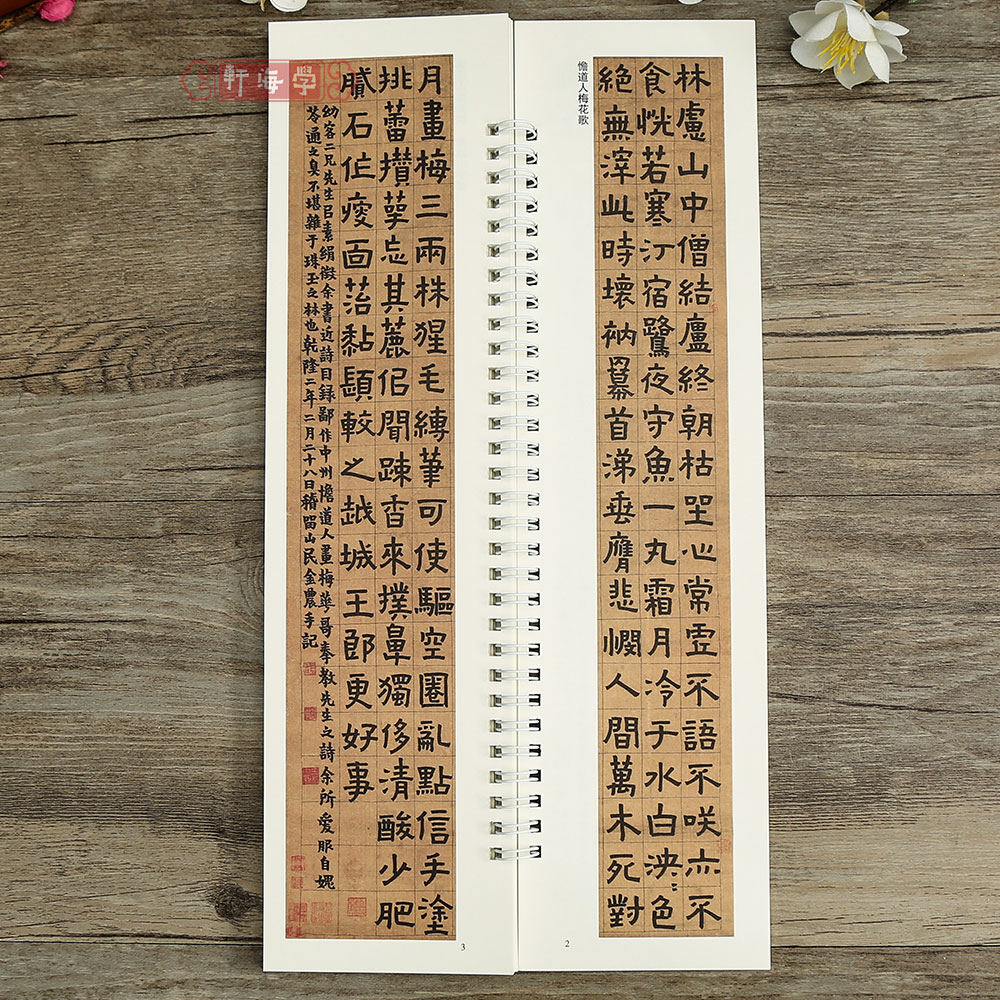 軒海學
憺道人梅花歌
林慮山中僧結廬終朝枯坐心常虛不語不咲亦不
食恍若寒汀宿鷺夜守魚一丸霜月冷于水白泱〻色
絕無滓此時壞衲冪首涕垂膺悲憫人間萬木死對
2
月畫梅三兩株猩毛縛筆可使驅空圈亂點信手塗
挑蕾攢萼忘其麄佀聞踈香來撲鼻獨侈清酸少肥
膩石作瘦面苔黏顋較之越城王郎更好事
幼客二兄先生㠯素絹徵余書近詩目録鄙作中州憺道人畫梅華哥奉教先生之詩余所愛服自媿
苓通之臭不堪雜于珠玉之林也乾隆二年二月二十八日稽留山民金農手記
3